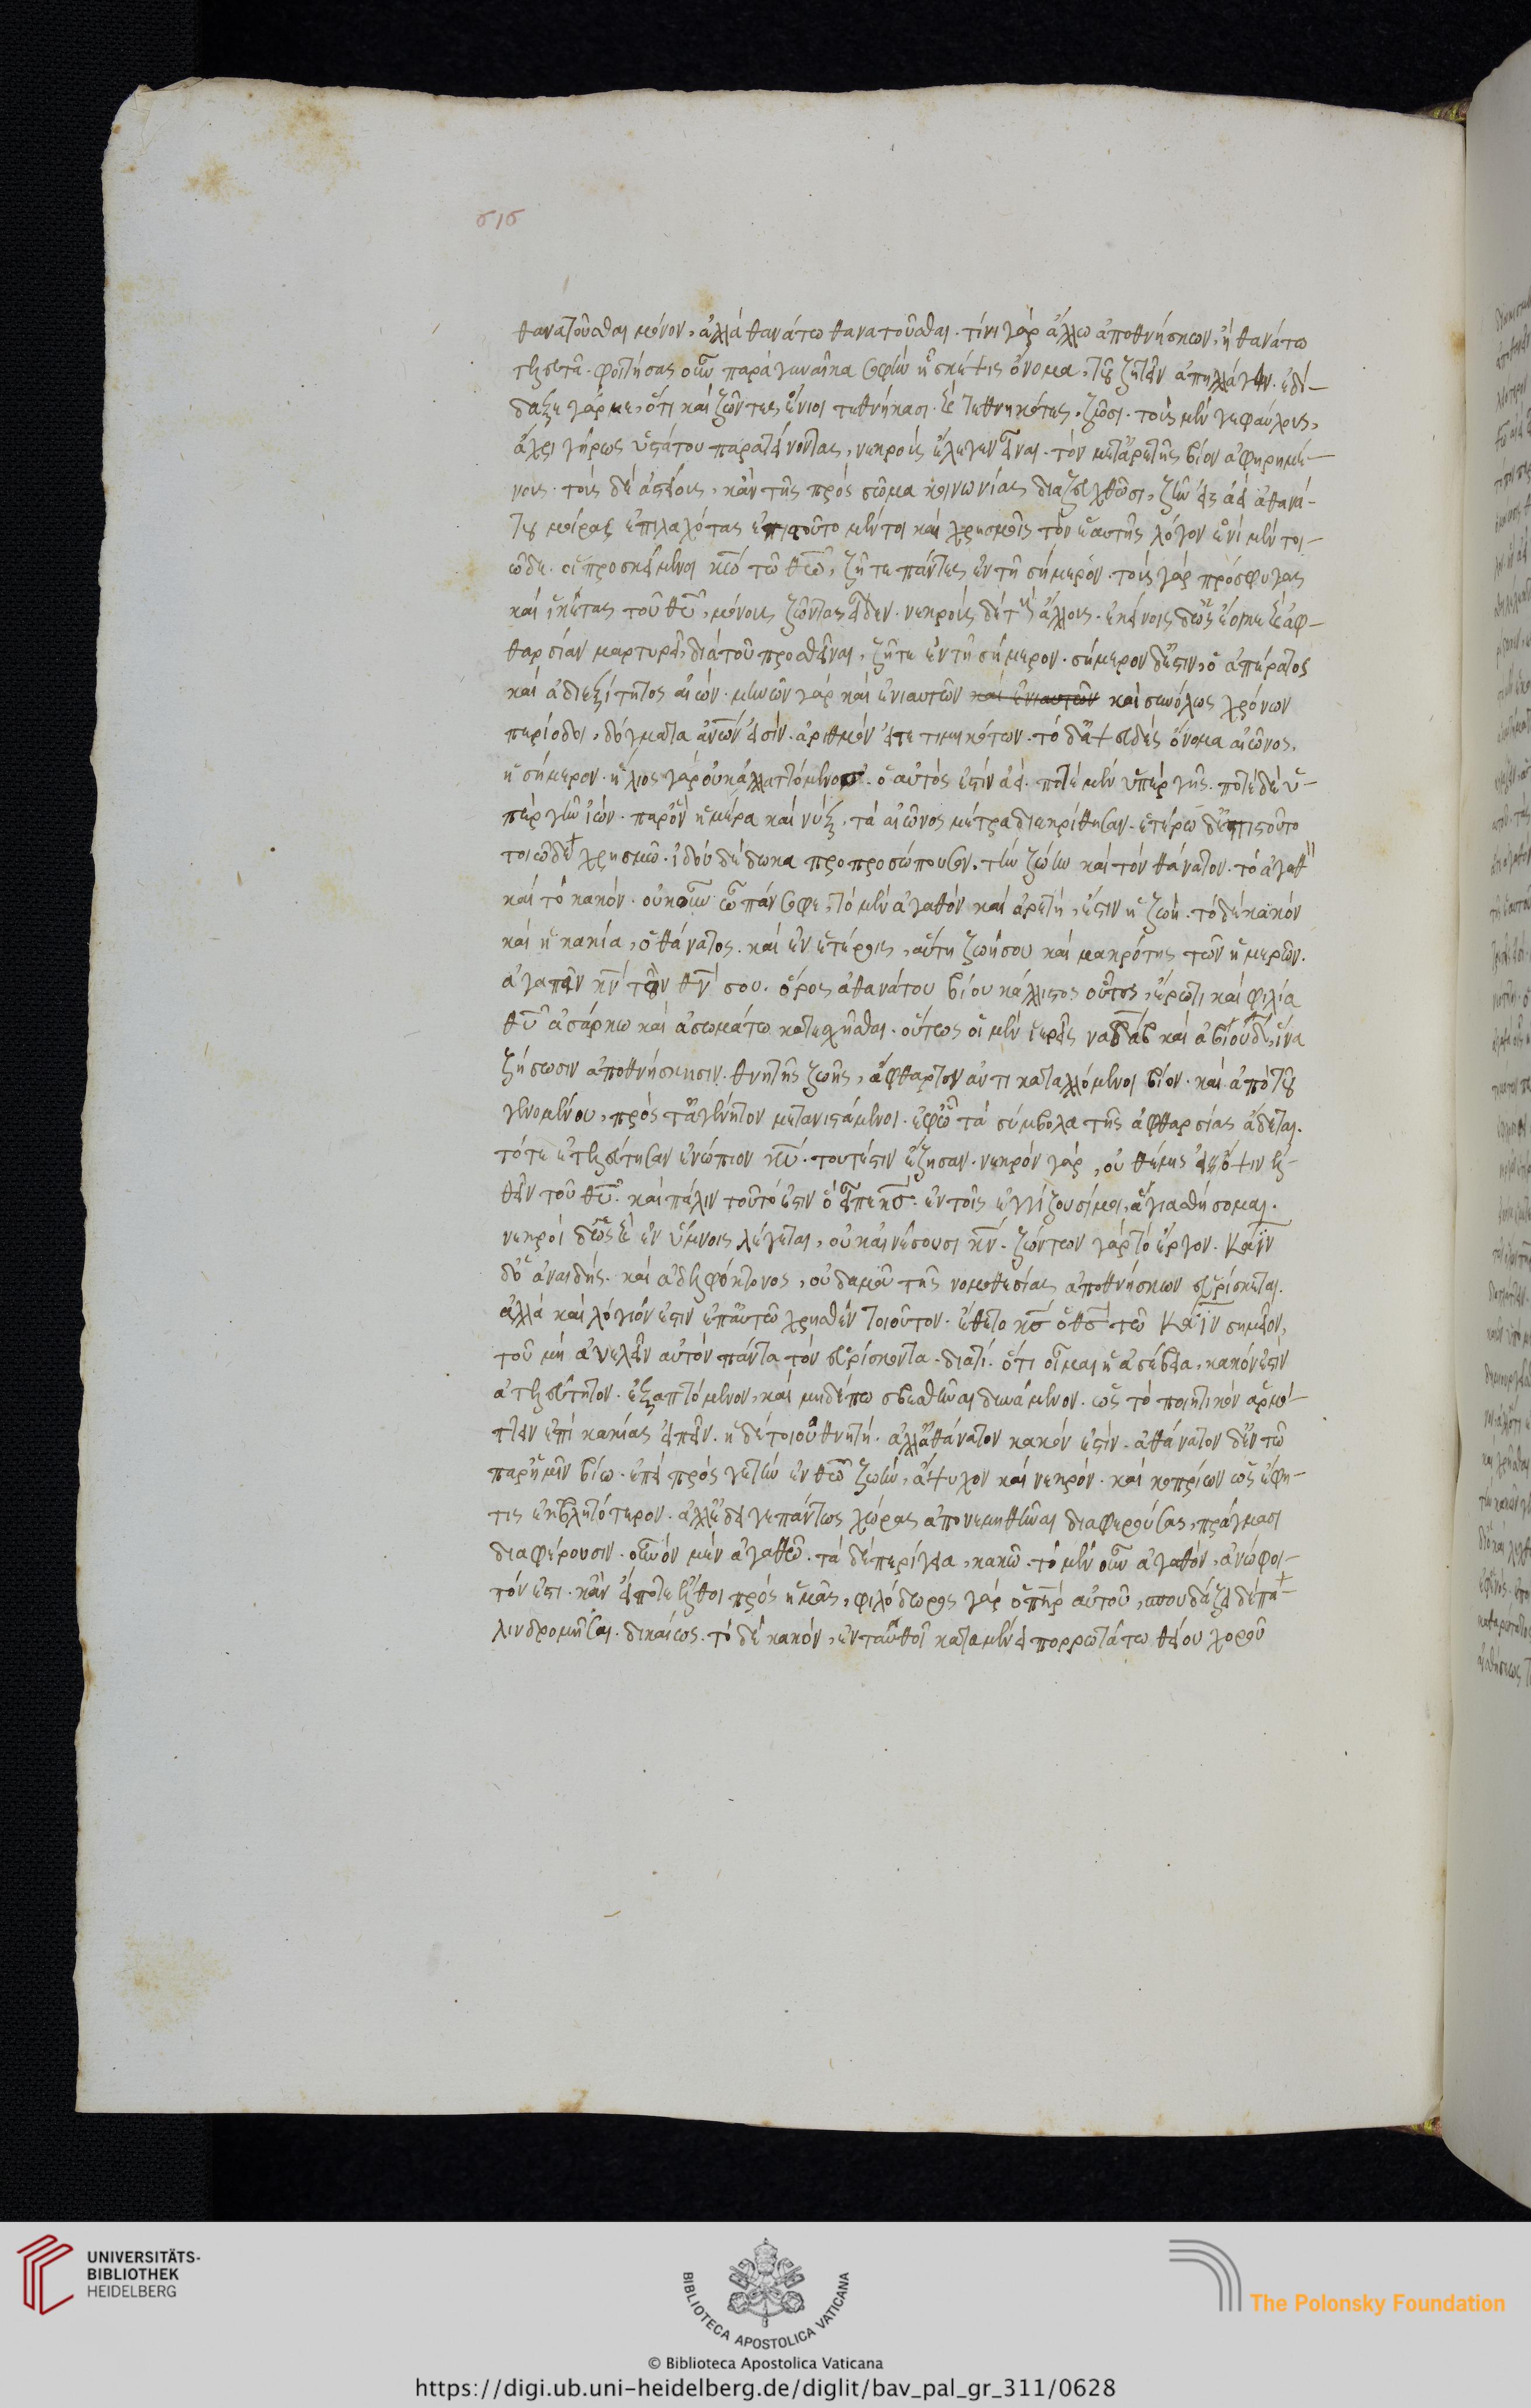 σισ
θανατοῦσθαι μόνον, ἀλλὰ θανάτω θανατοῦσθαι. τίνι γὰρ ἄλλω ἀποθνήσκων, ἢ θανάτω
τελευτᾶ. φοιτήσας οὖν παρὰ γυναῖκα σοφὴν ᾗ σκέψις ὄνομα, τοῦ ζητεῖν ἀπηλλάγην. ἐδί-
δαξε γάρ με, ὅτι καὶ ζῶντες ἔνιοι τεθνήκασι. καὶ τεθνηκότες, ζῶσι. τοὺς μέν γε φαύλους,
ἄχρι γήρως ὑστάτου παρατείνοντας, νεκροὺς ἔλεγεν εἶναι. τὸν μετ' ἀρετῆς βίον ἀφηρημέ-
νους. τοὺς δὲ ἀστείους, κἂν τῆς πρὸς σῶμα κοινωνίας διαζευχθῶσι, ζῆν εἰς ἀεὶ ἀθανά-
του μοίρας ἐπιλαχότας ἐπιστοῦτο μέντοι καὶ χρησμοῖς τὸν ἑαυτῆς λόγον ἑνὶ μὲν τοι-
ῶδε. οἱ προσκείμενοι κω τῶ θεῶ, ζῆτε πάντες ἐν τῆ σήμερον. τοὺς γὰρ πρόσφυγας
καὶ ἱκέτας τοῦ θυ, μόνους ζῶντας οἶδεν. νεκροὺς δὲ τοὺς ἄλλους. ἐκείνοις δ' ὡς ἔοικε καὶ ἀφ-
θαρσίαν μαρτυρεῖ, διὰ τοῦ προσθεῖναι, ζῆτε ἐν τῆ σήμερον. σήμερον δ' ἐστὶν, ὁ ἀπέρατος
καὶ ἀδιεξίτητος αἰών. μηνῶν γὰρ καὶ ἐνιαυτῶν καὶ ἐνιαυτῶν καὶ συνόλως χρόνων
περίοδοι, δόγματα ἀνων εἰσίν. ἀριθμὸν ἐκτετιμηκότων. τὸ δ' ἀψευδὲς ὄνομα αἰῶνος,
ἡ σήμερον. ἥλιος γὰρ οὐκ ἀλλαττόμενος. ὁ αὐτός ἐστιν ἀεί. ποτὲ μὲν ὑπὲρ γῆς. ποτὲ δὲ ὑ-
πὲρ γῆν ἰών. παρ' ὃν ἡμέρα καὶ νύξ, τὰ αἰῶνος μέτρα διεκρίθησαν. ἑτέρω δ' ἐπιστοῦτο
τοιῶδε χρησμῶ. ἰδοὺ δέδωκα πρὸ προσώπου σου, τὴν ζωὴν καὶ τὸν θάνατον. τὸ ἀγαθὸν
καὶ τὸ κακόν. οὐκοῦν ὦ πάνσοφε, τὸ μὲν ἀγαθὸν καὶ ἀρετή, ἐστιν ἡ ζωή. τὸ δὲ κακὸν
καὶ ἡ κακία, ὁ θάνατος. καὶ ἐν ἑτέροις, αὕτη ζωή σου καὶ μακρότης τῶν ἡμερῶν.
ἀγαπᾶν κν τὸν θν σου. ὅρος ἀθανάτου βίου κάλλιστος οὗτος, ἔρωτι καὶ φιλία
θυ ἀσάρκω καὶ ἀσωμάτω κατεσχῆσθαι. οὕτως οἱ μὲν ἱερεῖς ναδὰβ καὶ ἀβιοὺδ, ἵνα
ζήσωσιν ἀποθνήσκουσιν. θνητῆς ζωῆς, ἄφθαρτον ἀντικαταλλόμενοι βίον. καὶ ἀπὸ τοῦ
γενομένου, πρὸς τὸ ἀγένητον μετανιστάμενοι. ἐφ' ὧν τὰ σύμβολα τῆς ἀφθαρσίας ἄδεται.
τότε ἐτελεύτησαν ἐνώπιον κυ. τουτέστιν ἔζησαν. νεκρὸν γὰρ, οὐ θέμις εἰς ὄψιν ἐλ-
θεῖν τοῦ θυ. καὶ πάλιν τοῦτό ἐστιν ὃ εἶπε κσ. ἐν τοῖς ἐγγίζουσί μοι, ἁγιασθήσομαι.
νεκροὶ δ' ὡς καὶ ἐν ὕμνοις λέγεται, οὐκ αἰνέσουσι κν. ζώντων γὰρ τὸ ἔργον. Κάϊν
δ' ὁ ἀναιδής. καὶ ἀδελφόκτονος, οὐδαμοῦ τῆς νομοθεσίας ἀποθνήσκων εὑρίσκεται.
ἀλλὰ καὶ λόγιόν ἐστιν ἐπ' αὐτῶ χρησθὲν τοιοῦτον. ἔθετο κσ ὁ θσ τῶ Κάϊν σημεῖον,
τοῦ μὴ ἀνελεῖν αὐτὸν πάντα τὸν εὑρίσκοντα. διατί. ὅτι οἶμαι ἡ ἀσέβεια, κακόν ἐστιν
ἀτελεύτητον. ἐξαπτόμενον, καὶ μηδέπω σβεσθῆναι δυνάμενον. ὡς τὸ ποιητικὸν ἁρμό-
πτειν ἐπὶ κακίας εἰπεῖν. ἡ δέ τοι οὐ θνητή. ἀλλ' ἀθάνατον κακόν ἐστιν. ἀθάνατον δ' ἐν τῶ
παρ' ἡμῖν βίω. ἐπεὶ πρός γε τὴν ἐν θεῶ ζωήν, ἄψυχον καὶ νεκρόν. καὶ κοπρίων ὡς ἔφη-
τις ἐκβλητότερον. ἀλλ' ἔδει γε πάντως χώρας ἀπονεμηθῆναι διαφερούσας, πράγμασι
διαφέρουσιν. οὐνὸν μὲν ἀγαθῶ. τὰ δὲ περίγεια, κακῶ. τὸ μὲν οὖν ἀγαθόν, ἀνώφοι-
τόν ἐστι. κἂν εἴποτε ἔλθοι πρὸς ἡμᾶς, φιλόδωρος γὰρ ὁ πηρ αὐτοῦ, σπουδάζει δὲ πα-
λινδρομῆσαι. δικαίως. τὸ δὲ κακὸν, ἐνταυθοῖ καταμένει πορρωτάτω θείου χοροῦ
UNIVERSITÄTS-
BIBLIOTHEK
HEIDELBERG
BIBLIOTECA APOSTOLICA VATICANA
The Polonsky Foundation
© Biblioteca Apostolica Vaticana
https://digi.ub.uni-heidelberg.de/diglit/bav_pal_gr_311/0628